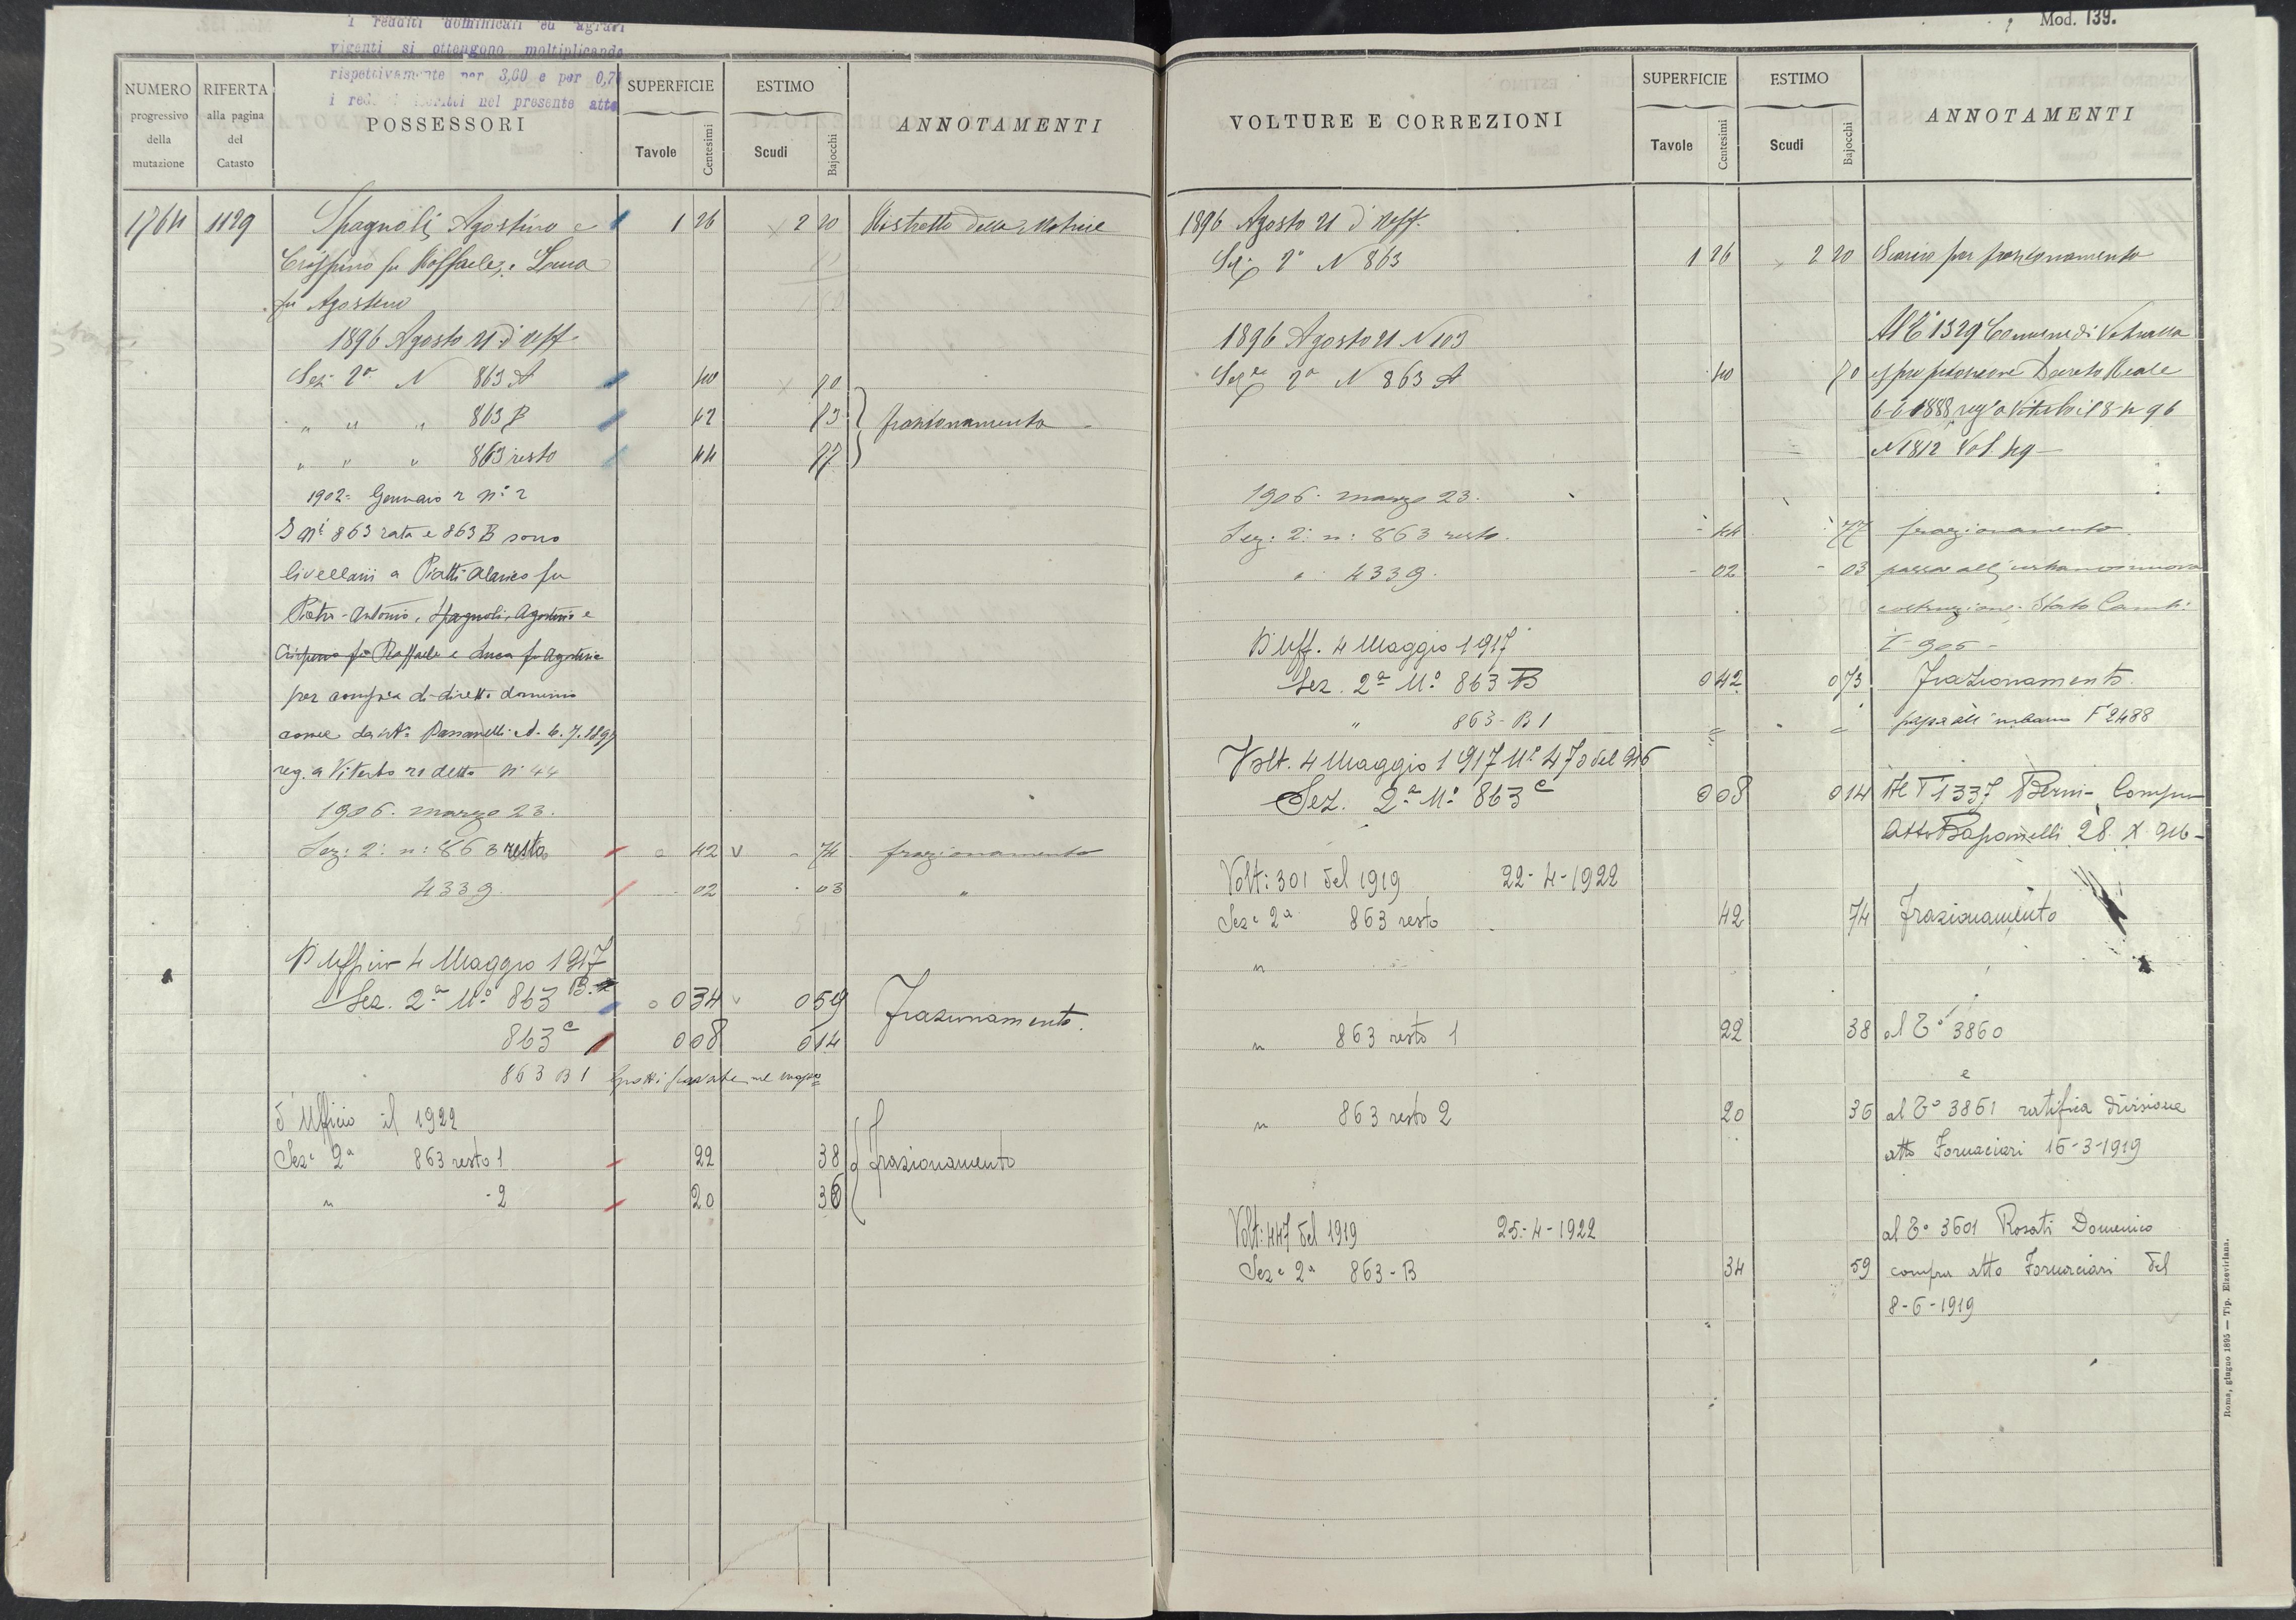 Mod. 139.
i redditi dominicali ed agrari
vigenti si ottengono moltiplicando
rispettivamente per 3,00 e per 0,70
i redditi iscritti nel presente atto
NUMERO progressivo della mutazione
RIFERTA alla pagina del Catasto
POSSESSORI
SUPERFICIE Tavole Centesimi
ESTIMO Scudi Bajocchi
ANNOTAMENTI
1764 1129 Spagnoli Agostino e 1 26 2 20 Ristretto della Matrice
Crispino fu Raffaele, e Luca
fu Agostino
1896 Agosto 21 d'Uff.
Sez. 2a N 863 A 40 70
" " " 863 B 42 73 frazionamento
" " " 863 resto 44 77
1902 = Gennaio 2 n: 2
I ni 863 rata e 863 B sono
livellarii a Piatti Alarico fu
Pietro-Antonio, Spagnoli, Agostino e
Crispino fu Raffaele e Luca fu Agostino
per compra di diretto dominio
come da
reg. a Viterbo 20 detto n. 44
1906. marzo 23.
Sez: 2: n: 863 resto 42 74 frazionamento
4339. 02 03 "
D'Ufficio 4 Maggio 1917
Sez. 2a No 863 B 034 059 Frazionamento.
863 C 008 014
863 B 1
D'Ufficio il 1922
Seze 2a 863 resto 1 22 38 Frazionamento
" - 2 20 36
VOLTURE E CORREZIONI
SUPERFICIE Tavole Centesimi
ESTIMO Scudi Bajocchi
ANNOTAMENTI
1896 Agosto 21 d'Uff.
Sez 2a N 863 1 26 2 20 Scarico per frazionamento
1896 Agosto 21 N 103 Al T 1329 Comune di Vetralla
Sez 2a N 863 A 40 70 Decreto Reale
6-6 1888
N 1812 Vol
1906. marzo 23.
Sez: 2: n: 863 resto. 44 77 frazionamento
" 4339. 02 03 nuova
costruzione. Stato
D'Uff. 4 Maggio 1917
Sez. 2a No 863 B 042 073 Frazionamento.
" 863 - B 1 passa all'urbano F 2488
Volt. 4 Maggio 1917 No 470 del 916
Sez. 2a No 863 C 008 014 Al T 1337 Compra
Atto 28. X. 916 -
Volt: 301 del 1919 22-4-1922
Seze 2a 863 resto 42 74 Frazionamento
"
" 863 resto 1 22 38 al To 3860
e
" 863 resto 2 20 36 al To 3861 ratifica divisione
atto Fornaciari 15-3-1919
Volt: 447 del 1919 25-4-1922 al To 3601 Rosati Domenico
Seze 2a 863-B 34 59 compra atto Fornaciari del
8-6-1919
Roma, giugno 1895 — Tip. Elzeviriana.